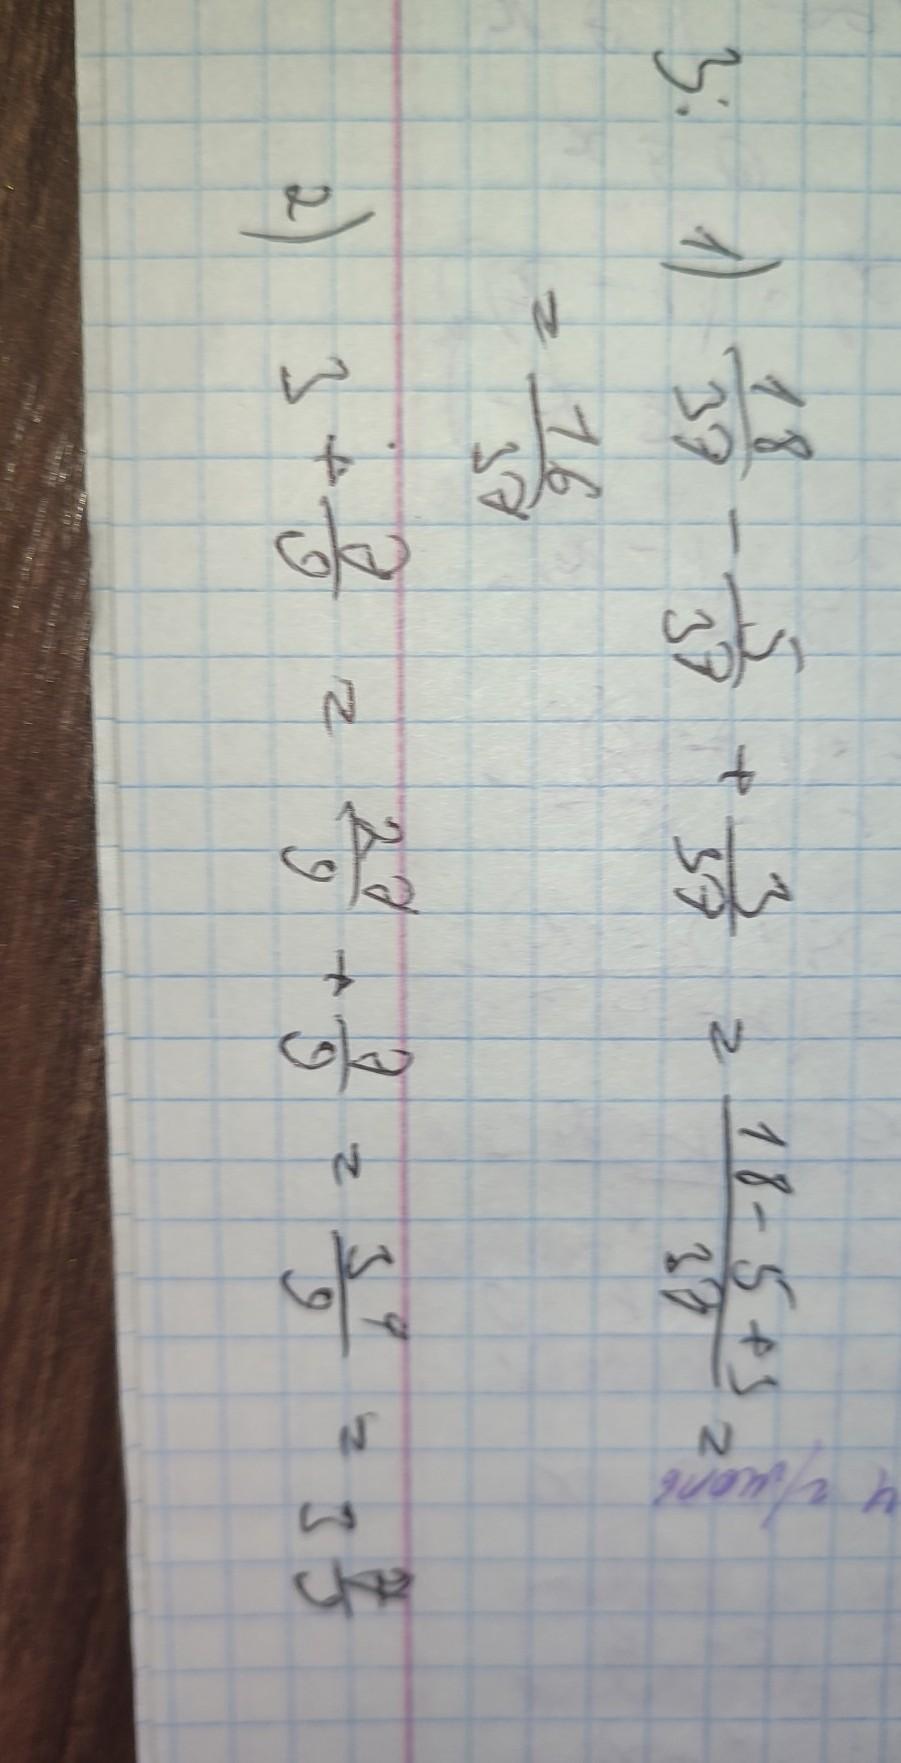 3. 1) 18/37 - 5/37 + 3/37 = (18-5+3)/37 =
= 16/37
2) 3 + 7/9 = 27/9 + 7/9 = 34/9 = 3 7/9